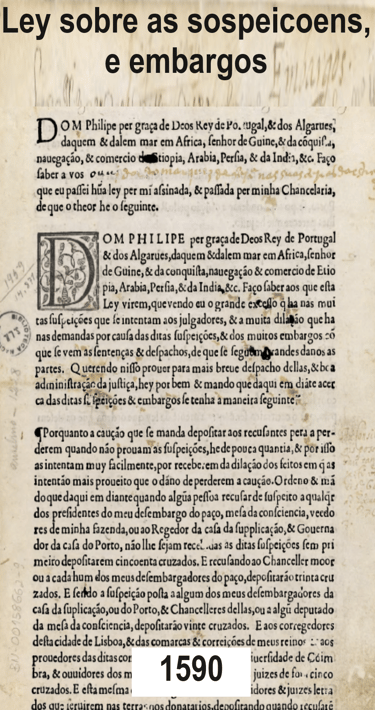 Ley sobre as sospeicoens,
e embargos
DOM Philipe per graça de Deos Rey de Po. tugal, & dos Algarues,
daquem & dalem mar em Africa, senhor de Guine, & da cõquista,
nauegação, & comercio de tiopia, Arabia, Persia, & da India, &c. Faço
saber a vos
que eu passei hũa ley per mi assinada, & passada per minha Chancelaria,
de que o theor he o seguinte.
DOM PHILIPE per graça de Deos Rey de Portugal
& dos Algarues, daquem & dalem mar em Africa, senhor
de Guine, & da conquista, nauegação & comercio de Etio
pia, Arabia, Persia, & da India, &c. Faço saber aos que esta
Ley virem, que vendo eu o grande excesso q ha nas mui
tas suspeições que se intentam aos julgadores, & a muita dilação que ha
nas demandas por causa das ditas suspeições, & dos muitos embargos cõ
que se vem às sentenças & despachos, de que se seguem grandes danos as
partes. Querendo nisso prouer para mais breue despacho dellas, & boa
administração da justiça, hey por bem & mando que daqui em diãte acer
ca das ditas suspeições & embargos se tenha a maneira seguinte.
¶Porquanto a caução que se manda depositar aos recusantes pera a per-
derem quando não prouam as suspeições, he de pouca quantia, & por isso
as intentam muy facilmente, por receberem da dilação dos feitos em q as
intentão mais proueito que o dãno de perderem a caução. Ordeno & mã
do que daqui em diante quando algũa pessoa recusar de suspeito a qualqr
dos presidentes do meu desembargo do paço, mesa da consciencia, veedo
res de minha fazenda, ou ao Regedor da casa da supplicação, & Gouerna
dor da casa do Porto, não lhe sejam recebidas as ditas suspeições sem pri
meiro depositarem cincoenta cruzados. E recusando ao Chanceller moor
ou a cada hum dos meus desembargadores do paço, depositarão trinta cru
zados. E sendo a suspeição posta a algum dos meus desembargadores da
casa da suplicação, ou do Porto, & Chancelleres dellas, ou a algũ deputado
da mesa da consciencia, depositarão vinte cruzados. E aos corregedores
desta cidade de Lisboa, & das comarcas & correições de meus reinos aos
prouedores das ditas co iuersidade de Coim
bra, & ouuidores dos m juizes de
cruzados. E esta mesma idores & juizes
dos que seruirem nas terras dos donatarios, depositarão quando recusare
1590